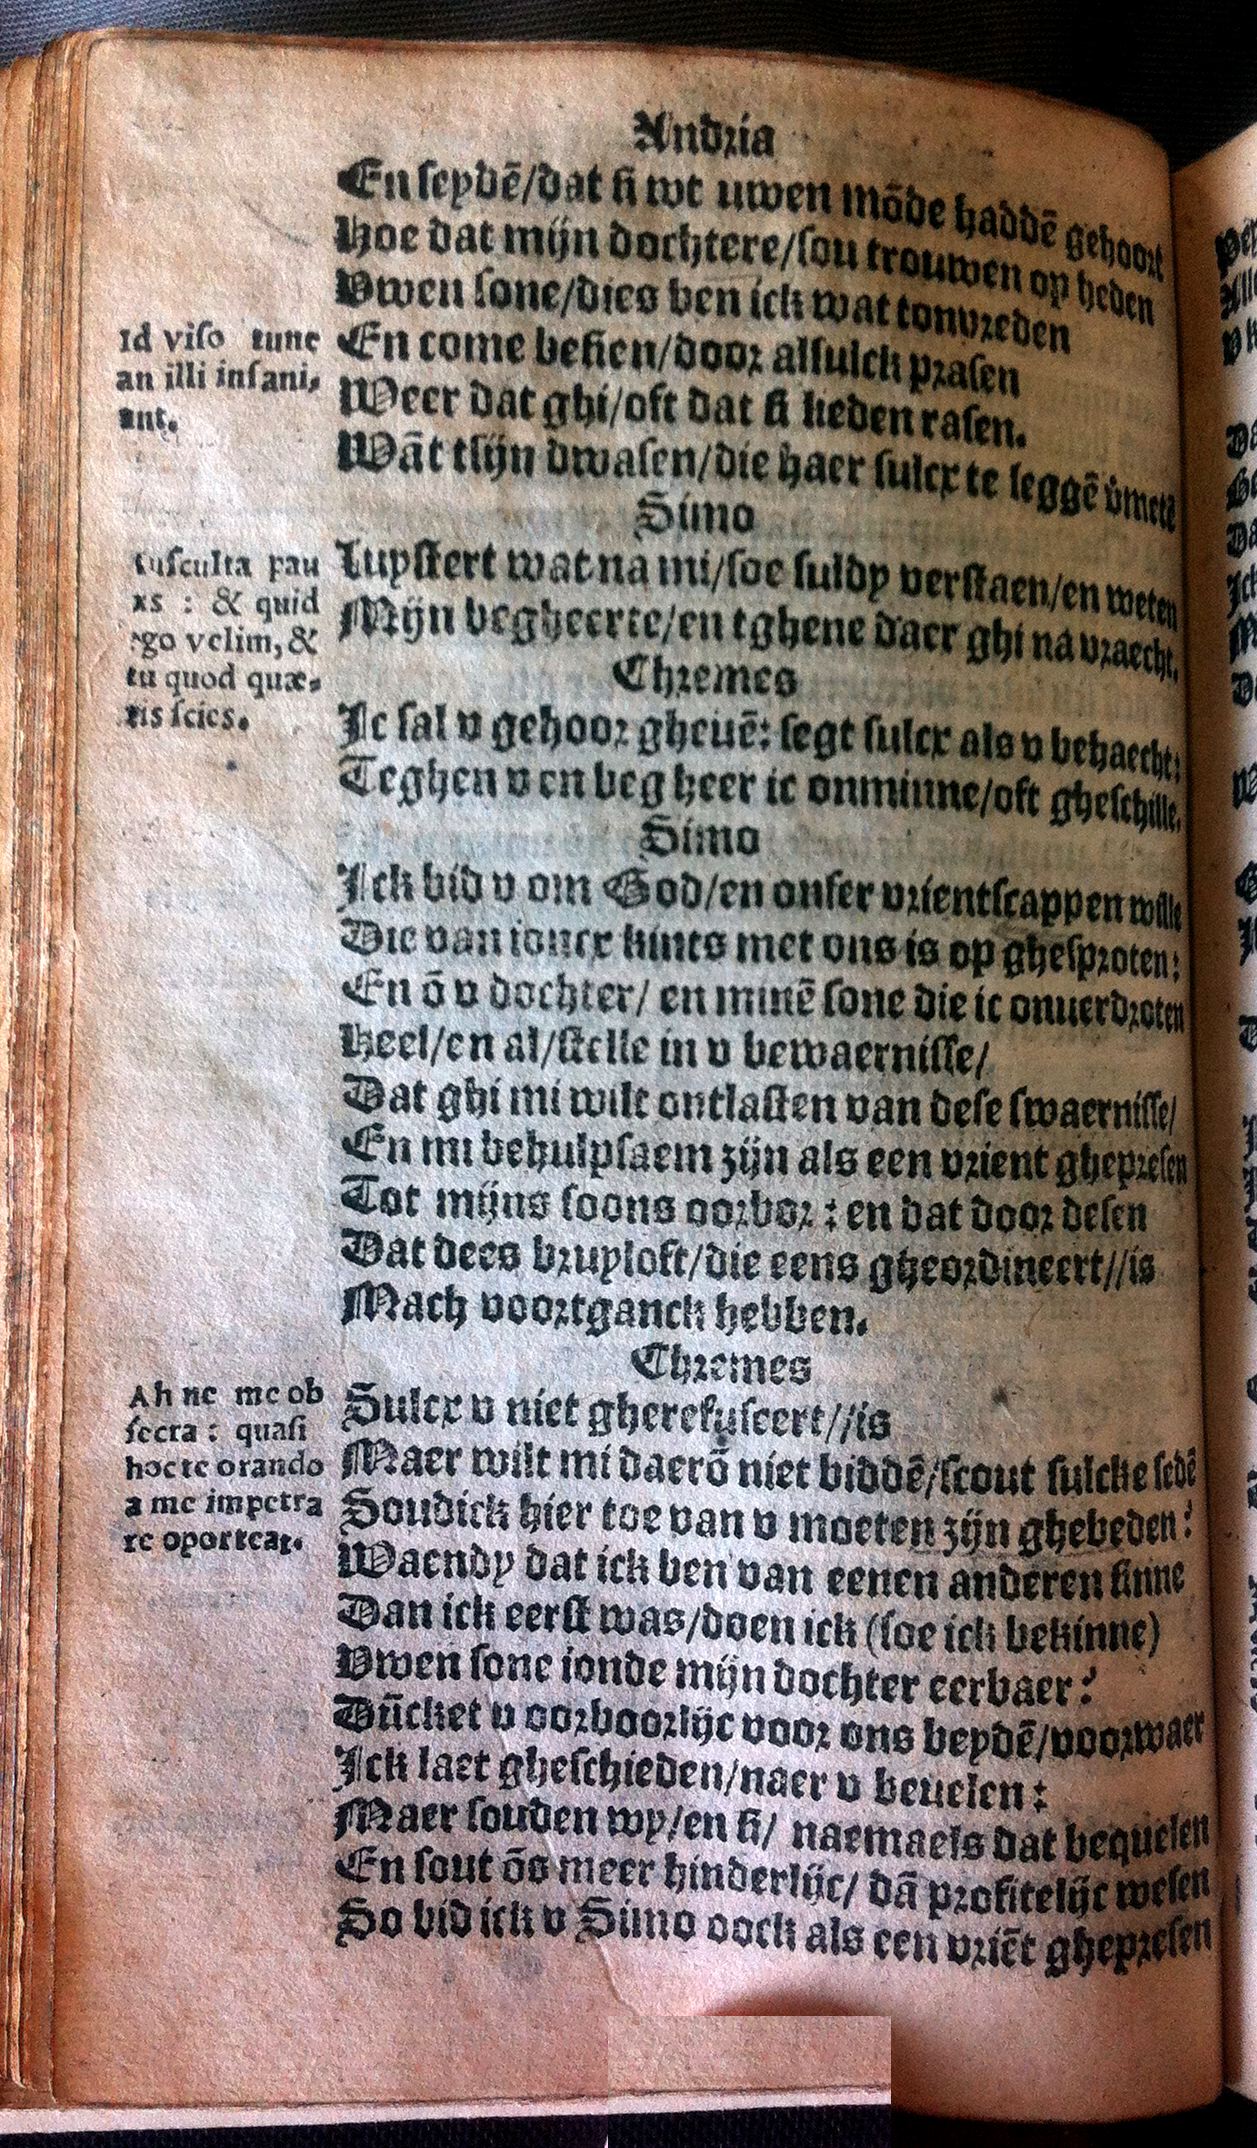 Andria
En seydē/dat si wt uwen mōde haddē gehoort
Hoe dat mijn dochtere/sou trouwen op heden
Vwen sone/dies ben ick wat tonvreden
En come besien/door alsulck prasen
Weer dat ghi/oft dat si lieden rasen.
Wāt tsijn dwasen/die haer sulcx te leggē v̊metē
Id viso tune
an illi insani,
ant.
Simo
Luystert wat na mi/soe suldy verstaen/en weten
Mijn begheerte/en tghene daer ghi na vraecht.
usculta pau
xs : & quid
ego velim, &
tu quod quæ,
ris scies.
Chremes
Ic sal v gehoor gheuē: segt sulcx als v behaecht:
Teghen v en begheer ic onminne/oft gheschille.
Simo
Ick bid v om God/en onser vrientscappen wille
Die van ioncx kints met ons is op ghesproten:
En ō v dochter/ en minē sone die ic onuerdroten
Heel/en al/stelle in v bewaernisse/
Dat ghi mi wilt ontlasten van dese swaernisse/
En mi behulpsaem zijn als een vrient ghepresen
Tot mijns soons oorbor : en dat door desen
Dat dees bruyloft/die eens gheordineert//is
Mach voortganck hebben.
Chremes
Sulcx v niet gherefuseert//is
Maer wilt mi daerō niet biddē/scout sulcke sedē
Soudick hier toe van v moeten zijn ghebeden?
Waendy dat ick ben van eenen anderen sinne
Dan ick eerst was/doen ick (soe ick bekinne)
Vwen sone ionde mijn dochter eerbaer?
Dūcket v oorboorlijc voor ons beydē/voorwaer
Ick laet gheschieden/naer v beuelen :
Maer souden wy/en si/ naemaels dat bequelen
En sout ōs meer hinderlijc/ dā profitelijc wesen
So bid ick v Simo oock als een vriēt ghepresen
Ah ne me ob
secra : quasi
hoc te orando
a me impetra
re oporteat.